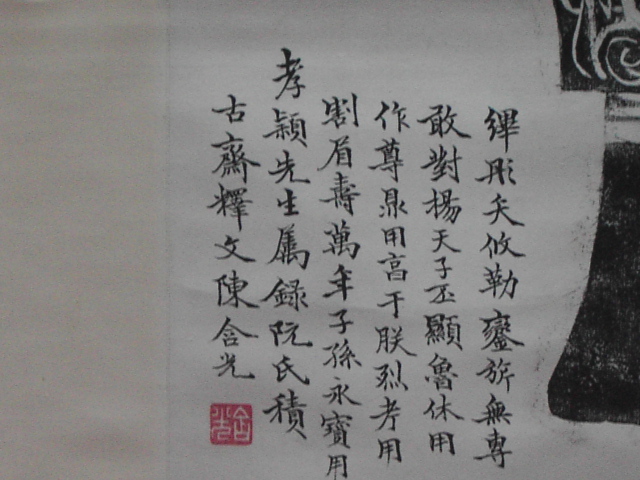 縪彤矢攸勒鑾旂無專
敢對揚天子丕顯魯休用
作尊鼎用亯于朕烈考用
割眉壽萬年子孫永寶用
孝穎先生属録阮氏積
古齋釋文陳含光
含光